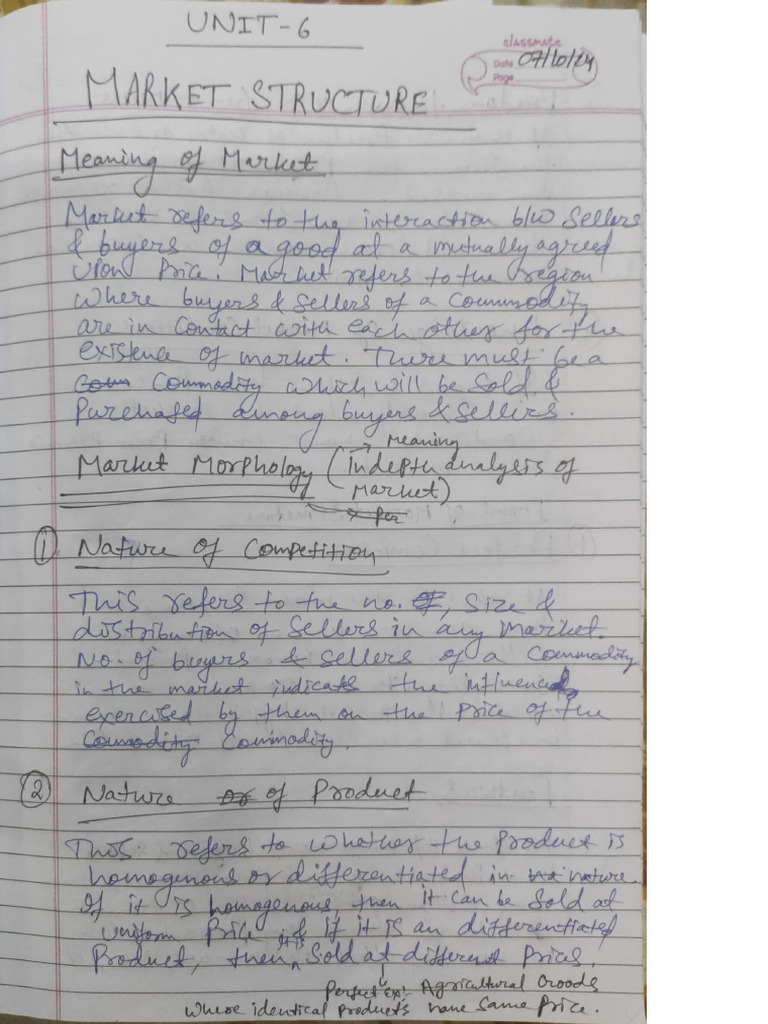 UNIT-6
classmate
Date 07/10/24
Page
MARKET STRUCTURE
Meaning of Market
Market refers to the interaction b/w Sellers
& buyers of a good at a mutually agreed
upon Price. Market refers to the region
where buyers & Sellers of a Commodity
are in Contact with each other for the
existence of market. There must be a
Commodity which will be Sold &
Purchased among buyers & Sellers.
→ Meaning
Market Morphology (Indepth analysis of
Market)
→ per
① Nature of Competition
This refers to the no. of, Size &
distribution of Sellers in any Market.
No. of buyers & Sellers of a Commodity
in the market indicates the influence
exercised by them on the Price of the
Commodity Commodity.
② Nature or of Product
This refers to whether the Product is
homogenous or differentiated in nature.
If it is homogenous, then it can be Sold at
uniform Price & if it is an differentiated
Product, then it is Sold at different Prices.
Perfect Ex:- Agricultural Goods
where identical Products have Same Price.